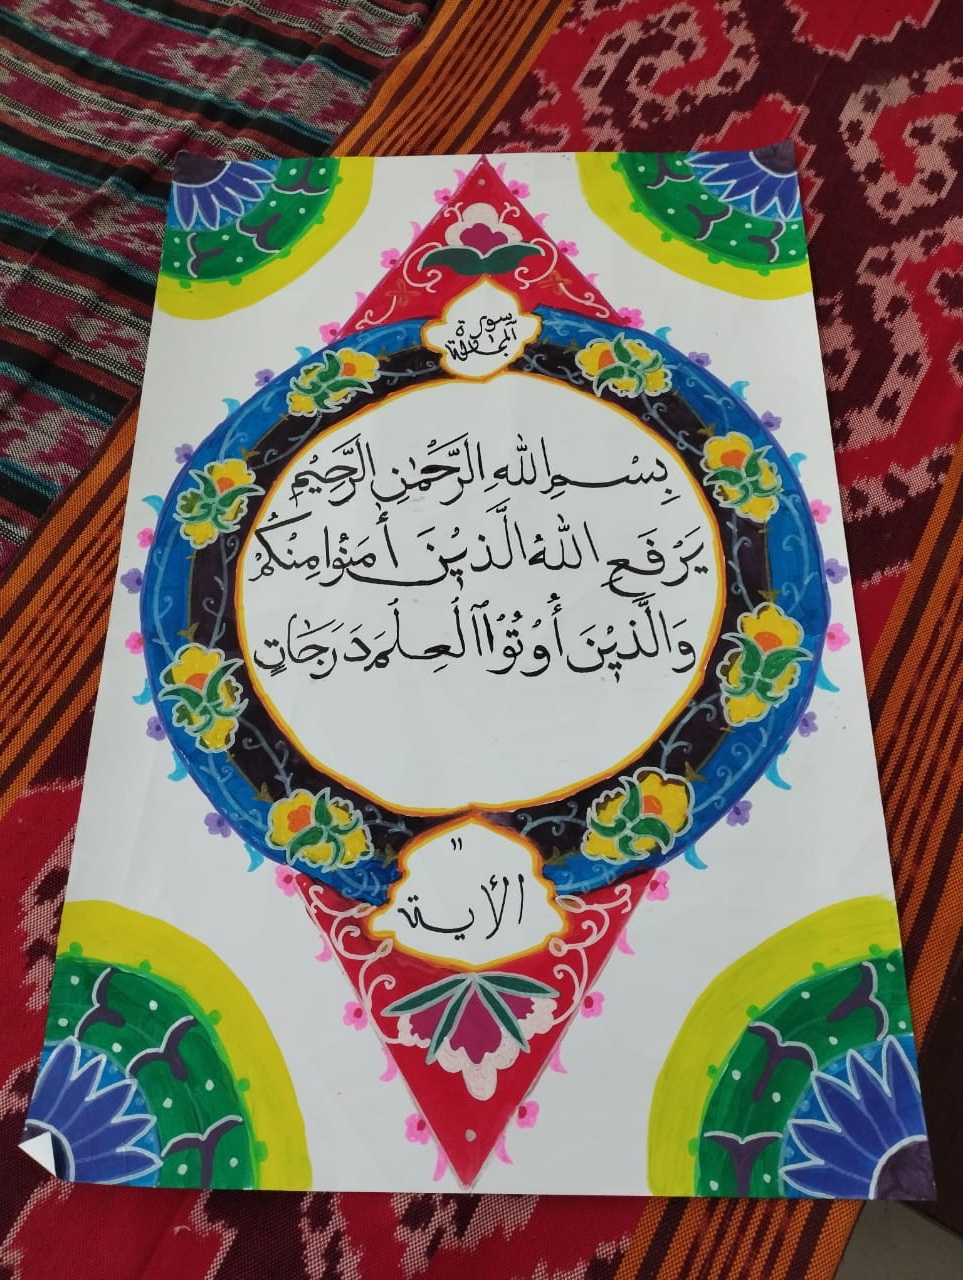 سورة
المجادلة
بِسْمِ اللهِ الرَّحْمٰنِ الرَّحِيْمِ
يَرْفَعِ اللهُ الَّذِيْنَ أٰمَنُوْا مِنْكُمْ
وَالَّذِيْنَ أُوْتُوْا الْعِلْمَ دَرَجَاتٍ
١١
الأية